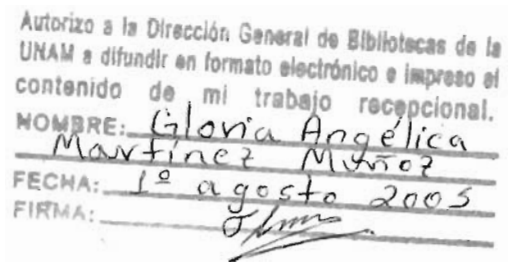 Autorizo a la Dirección General de Bibliotecas de la
UNAM a difundir en formato electrónico e impreso el
contenido de mi trabajo recepcional.
NOMBRE: Gloria Angélica
Martínez Muñoz
FECHA: 1º agosto 2005
FIRMA: